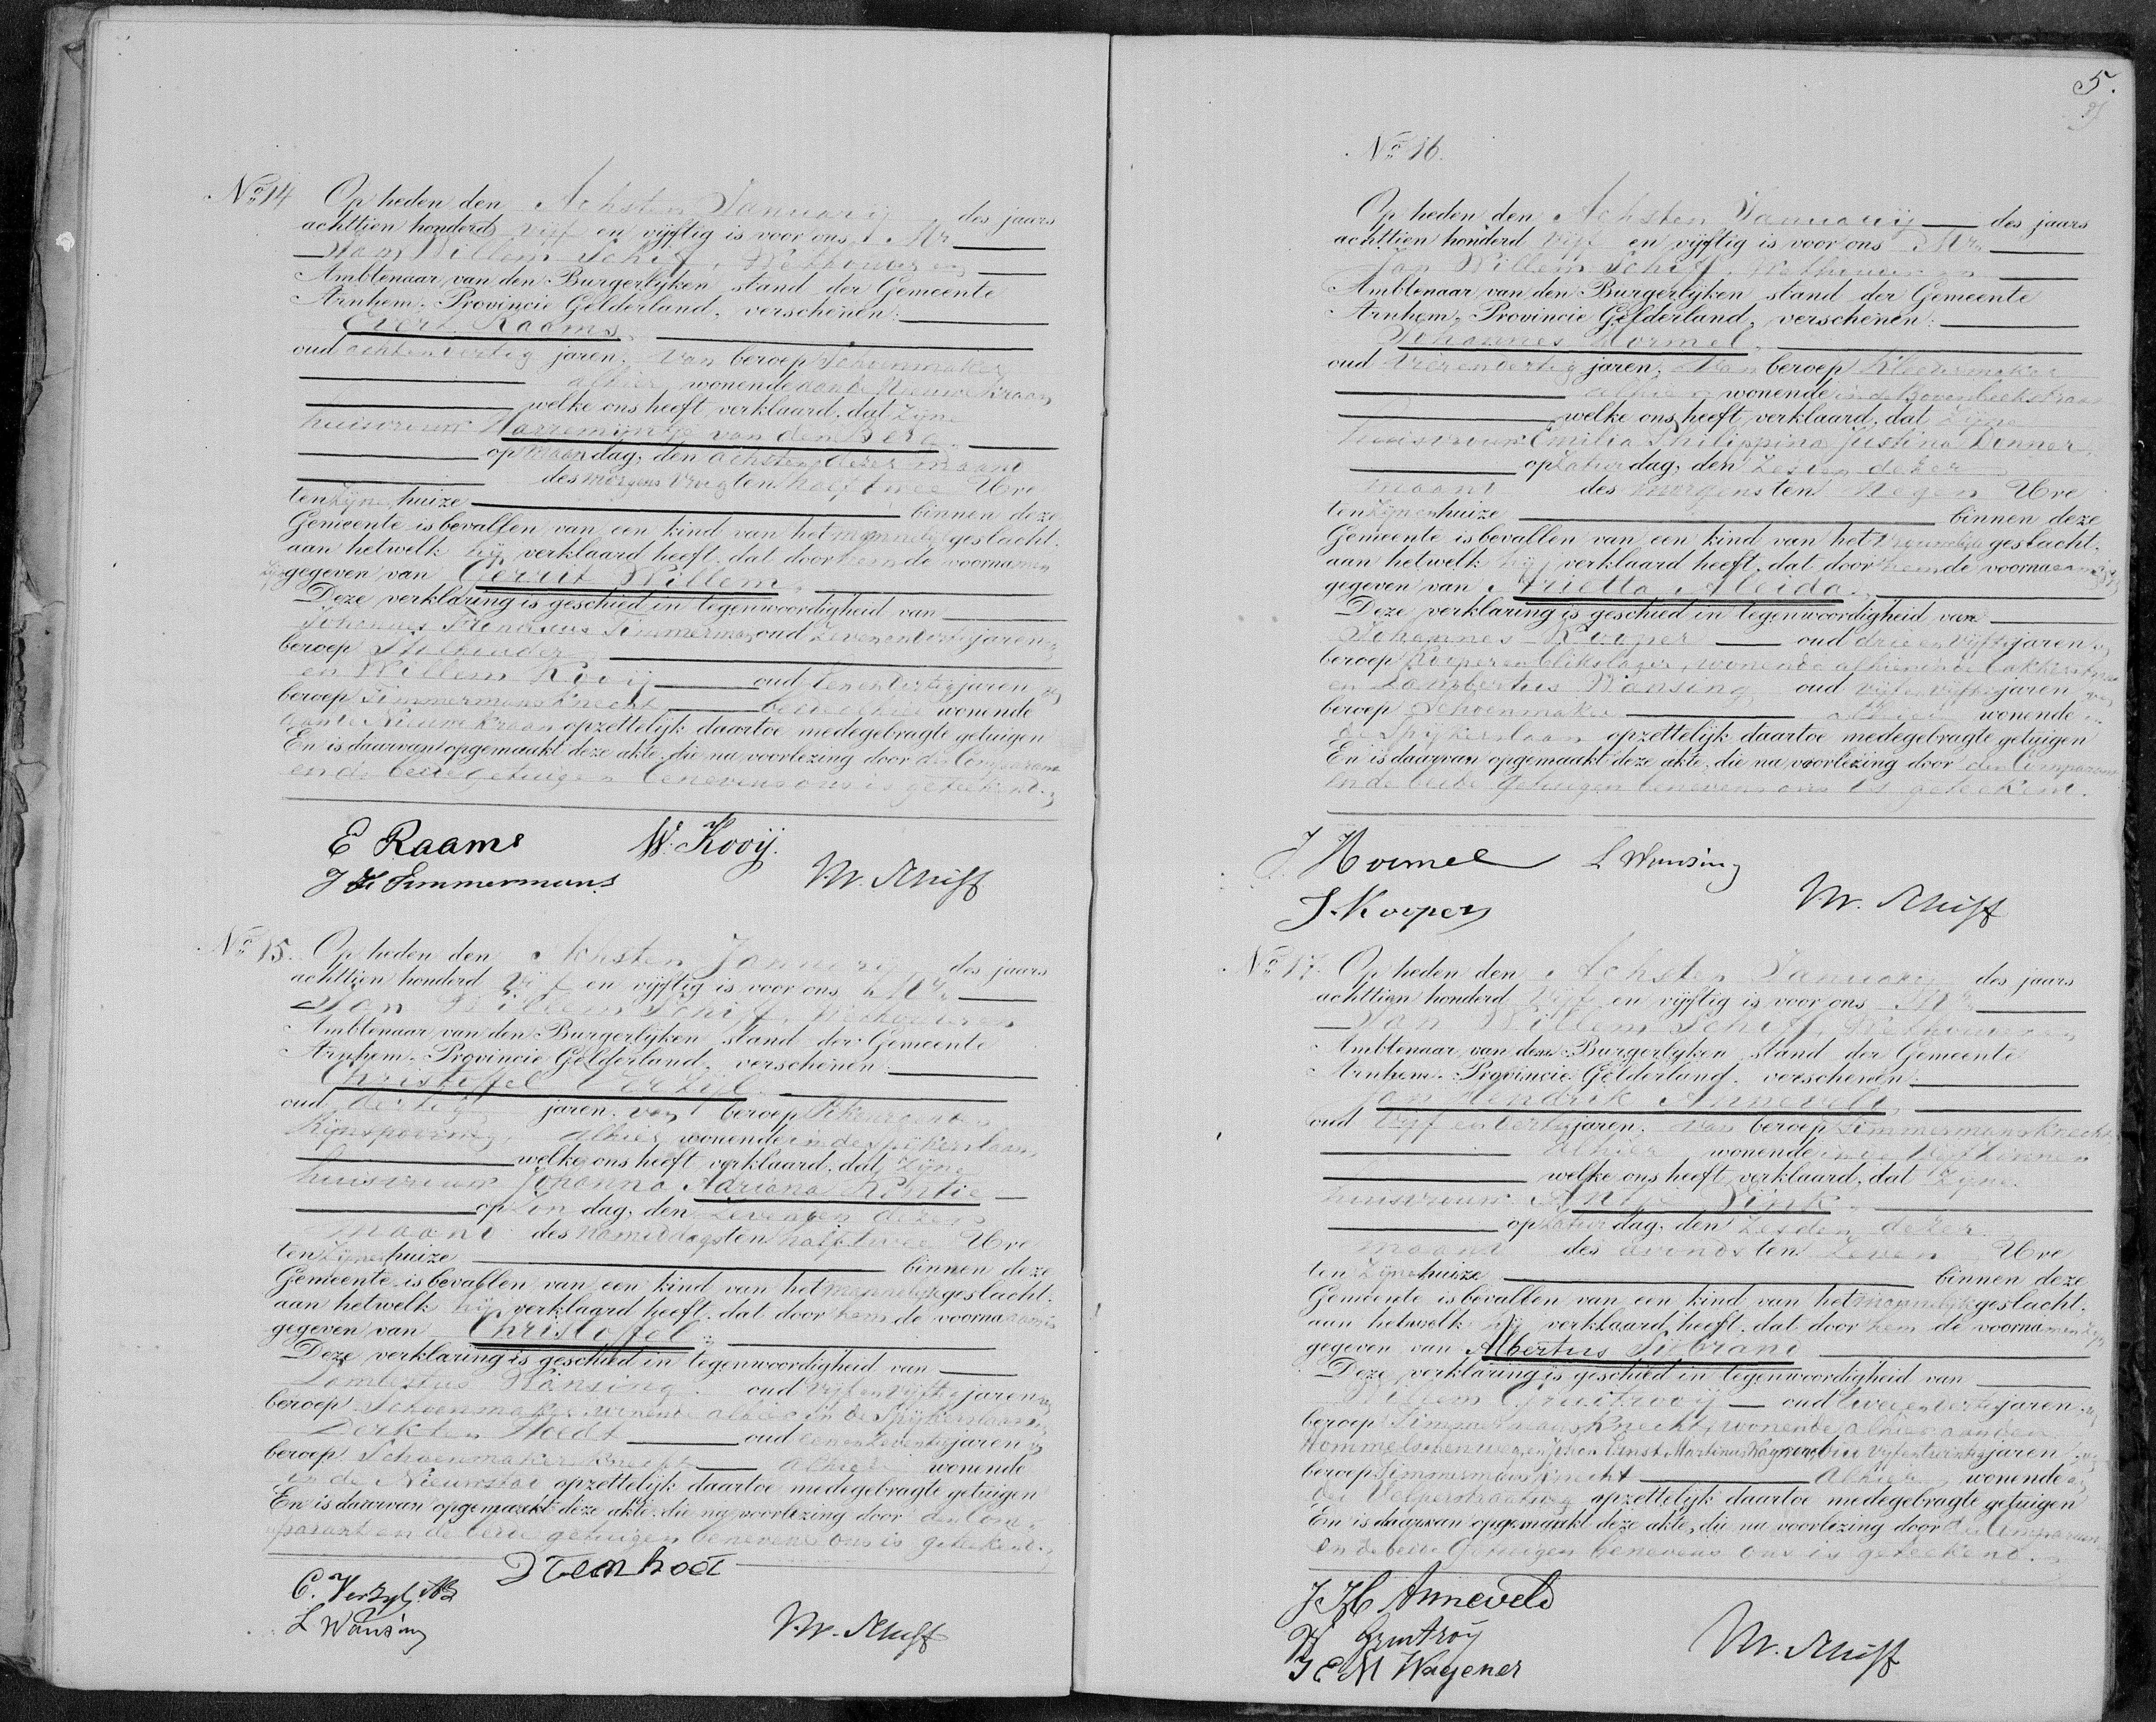 No 14 Op heden den Achsten Januarij des jaars
achttien honderd vijf en vijftig is voor ons Mr
Jan Willem Schiff, Wethouder en
Ambtenaar van den Burgerlijken stand der Gemeente
Arnhem, Provincie Gelderland, verschenen:
Evert Raams
oud achtenveertig jaren, van beroep Schoenmaker
alhier wonende aan de Nieuwe Kraan
welke ons heeft verklaard, dat zijne
huisvrouw Harremijntje van den Berg
op Maandag, den achsten dezer maand
des morgens vroeg ten half twee Ure
ten zijne huize binnen deze
Gemeente is bevallen van een kind van het mannelijk geslacht.
aan hetwelk hij verklaard heeft, dat door hem de voornamen
zijn gegeven van Gerrit Willem
Deze verklaring is geschied in tegenwoordigheid van
Johannes Timmerman oud zevenenveertig jaren
beroep Stalhouder
en Willem Kooij oud jaren
beroep Timmermansknecht beide alhier wonende
aan de Nieuwe Kraan opzettelijk daartoe medegebragte getuigen
En is daarvan opgemaakt deze akte, die na voorlezing door den Comparant
en de beide getuigen benevens ons is geteekend.
E Raams W. Kooij.
J H Timmermans J.W. Schiff
No 15. Op heden den Achsten Januarij des jaars
achttien honderd vijf en vijftig is voor ons Mr
Jan Willem Schiff, Wethouder en
Ambtenaar van den Burgerlijken stand der Gemeente
Arnhem, Provincie Gelderland, verschenen:
Christoffel Verzijl
oud dertig jaren, van beroep
Rijnspoorweg, alhier wonende in de Spijkerslaan
welke ons heeft verklaard, dat zijne
huisvrouw Johanna Adriana Kentie
op Zondag, den Zevenden dezer
maand des Namiddags ten half twee Ure
ten zijne huize binnen deze
Gemeente is bevallen van een kind van het mannelijk geslacht.
aan hetwelk hij verklaard heeft, dat door hem de voornaam is
gegeven van Christoffel
Deze verklaring is geschied in tegenwoordigheid van
Lambertus Wansing oud vijf en vijftig jaren
beroep Schoenmaker, wonende alhier in de Spijkerslaan
Derk ten Hoedt oud jaren
beroep Schoenmakersknecht alhier wonende
in de Nieuwstad opzettelijk daartoe medegebragte getuigen
En is daarvan opgemaakt deze akte, die na voorlezing door den Com-
parant en de beide getuigen benevens ons is geteekend.
C. Verzyl D ten hoet
L Wansing J.W. Schiff
5.
No 16.
Op heden den Achsten Januarij des jaars
achttien honderd vijf en vijftig is voor ons Mr
Jan Willem Schiff, Wethouder en
Ambtenaar van den Burgerlijken stand der Gemeente
Arnhem, Provincie Gelderland, verschenen:
Johannes Hormel
oud vierenveertig jaren, van beroep Kleermaker
alhier wonende in de Bovenbeekstraat
welke ons heeft verklaard, dat zijne
huisvrouw Emilia Philippina Justina Donner
op Zaturdag, den Zesden dezer
maand des morgens ten Negen Ure
ten zijnen huize binnen deze
Gemeente is bevallen van een kind van het vrouwelijk geslacht.
aan hetwelk hij verklaard heeft, dat door hem de voornaamen zijn
gegeven van Arietta Aleida
Deze verklaring is geschied in tegenwoordigheid van
Johannes Kooper oud drie en vijftig jaren
beroep Koper en blikslager, wonende alhier in de Bakkerstraat
en Lambertus Wansing oud vijf en vijftig jaren van
beroep Schoenmaker Alhier wonende in
de Spijkerslaan opzettelijk daartoe medegebragte getuigen
En is daarvan opgemaakt deze akte, die na voorlezing door den Comparant
en de beide getuigen benevens ons is geteekend.
J. Hormel L Wansing
J. Kooper J.W. Schiff
No 17. Op heden den Achsten Januarij des jaars
achttien honderd vijf en vijftig is voor ons Mr
Jan Willem Schiff, Wethouder en
Ambtenaar van den Burgerlijken stand der Gemeente
Arnhem, Provincie Gelderland, verschenen:
Jan Hendrik Anneveld
oud vijf en veertig jaren, van beroep Timmermansknecht
Alhier wonende in de
welke ons heeft verklaard, dat zijne
huisvrouw Antje Vink
op Zaturdag, den Zesden dezer
maand des avonds ten Zeven Ure
ten zijne huize binnen deze
Gemeente is bevallen van een kind van het mannelijk geslacht.
aan hetwelk hij verklaard heeft, dat door hem de voornamen zijn
gegeven van Albertus Sibrand
Deze verklaring is geschied in tegenwoordigheid van
Willem Gruitrooij oud jaren
beroep Timmermansknecht, wonende alhier aan den
Hommelschenweg, en Johan Ernst Martinus Wagener, oud vijfentwintig jaren
beroep Timmermansknecht Alhier wonende
den Velperstraatweg opzettelijk daartoe medegebragte getuigen
En is daarvan opgemaakt deze akte, die na voorlezing door den Comparant
en de beide getuigen benevens ons is geteekend.
J H Anneveld
W Gruitroij
J E M Wagener J.W. Schiff